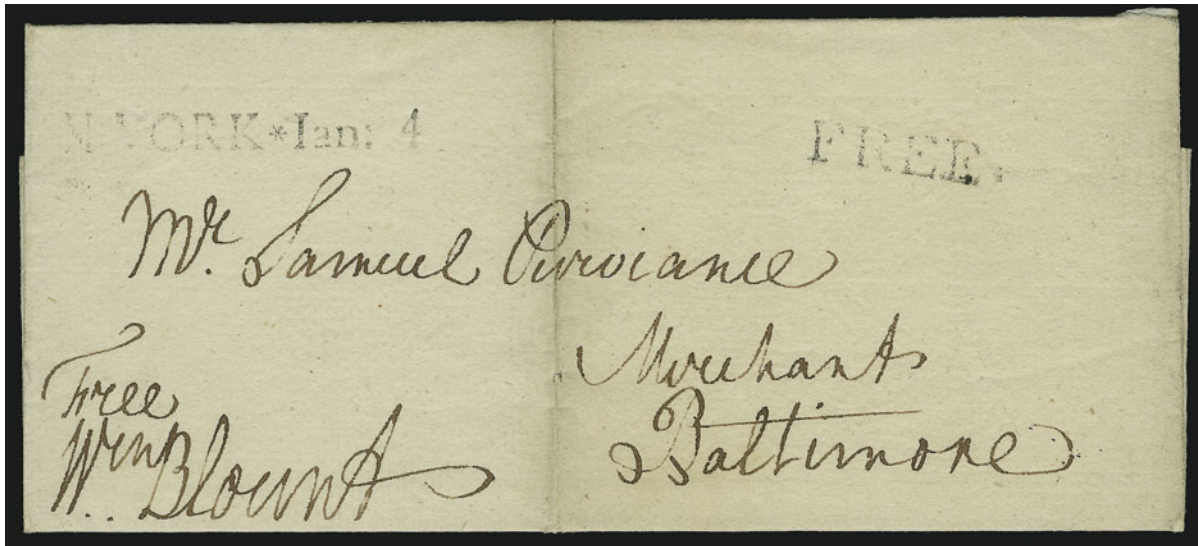 N*YORK*Ian: 4
FREE.
Mr. Samuel Purviance
Merchant
Baltimore
Free
Wm Blount